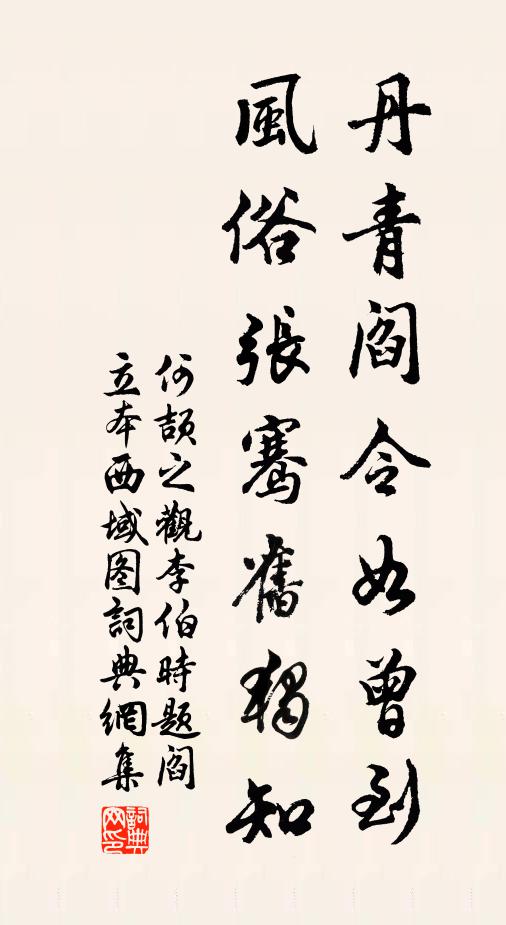 丹青阎令如曾到
風俗張騫舊獨知
何頡之觀李伯時题阎
立本西域图詞典網集
詞典网印